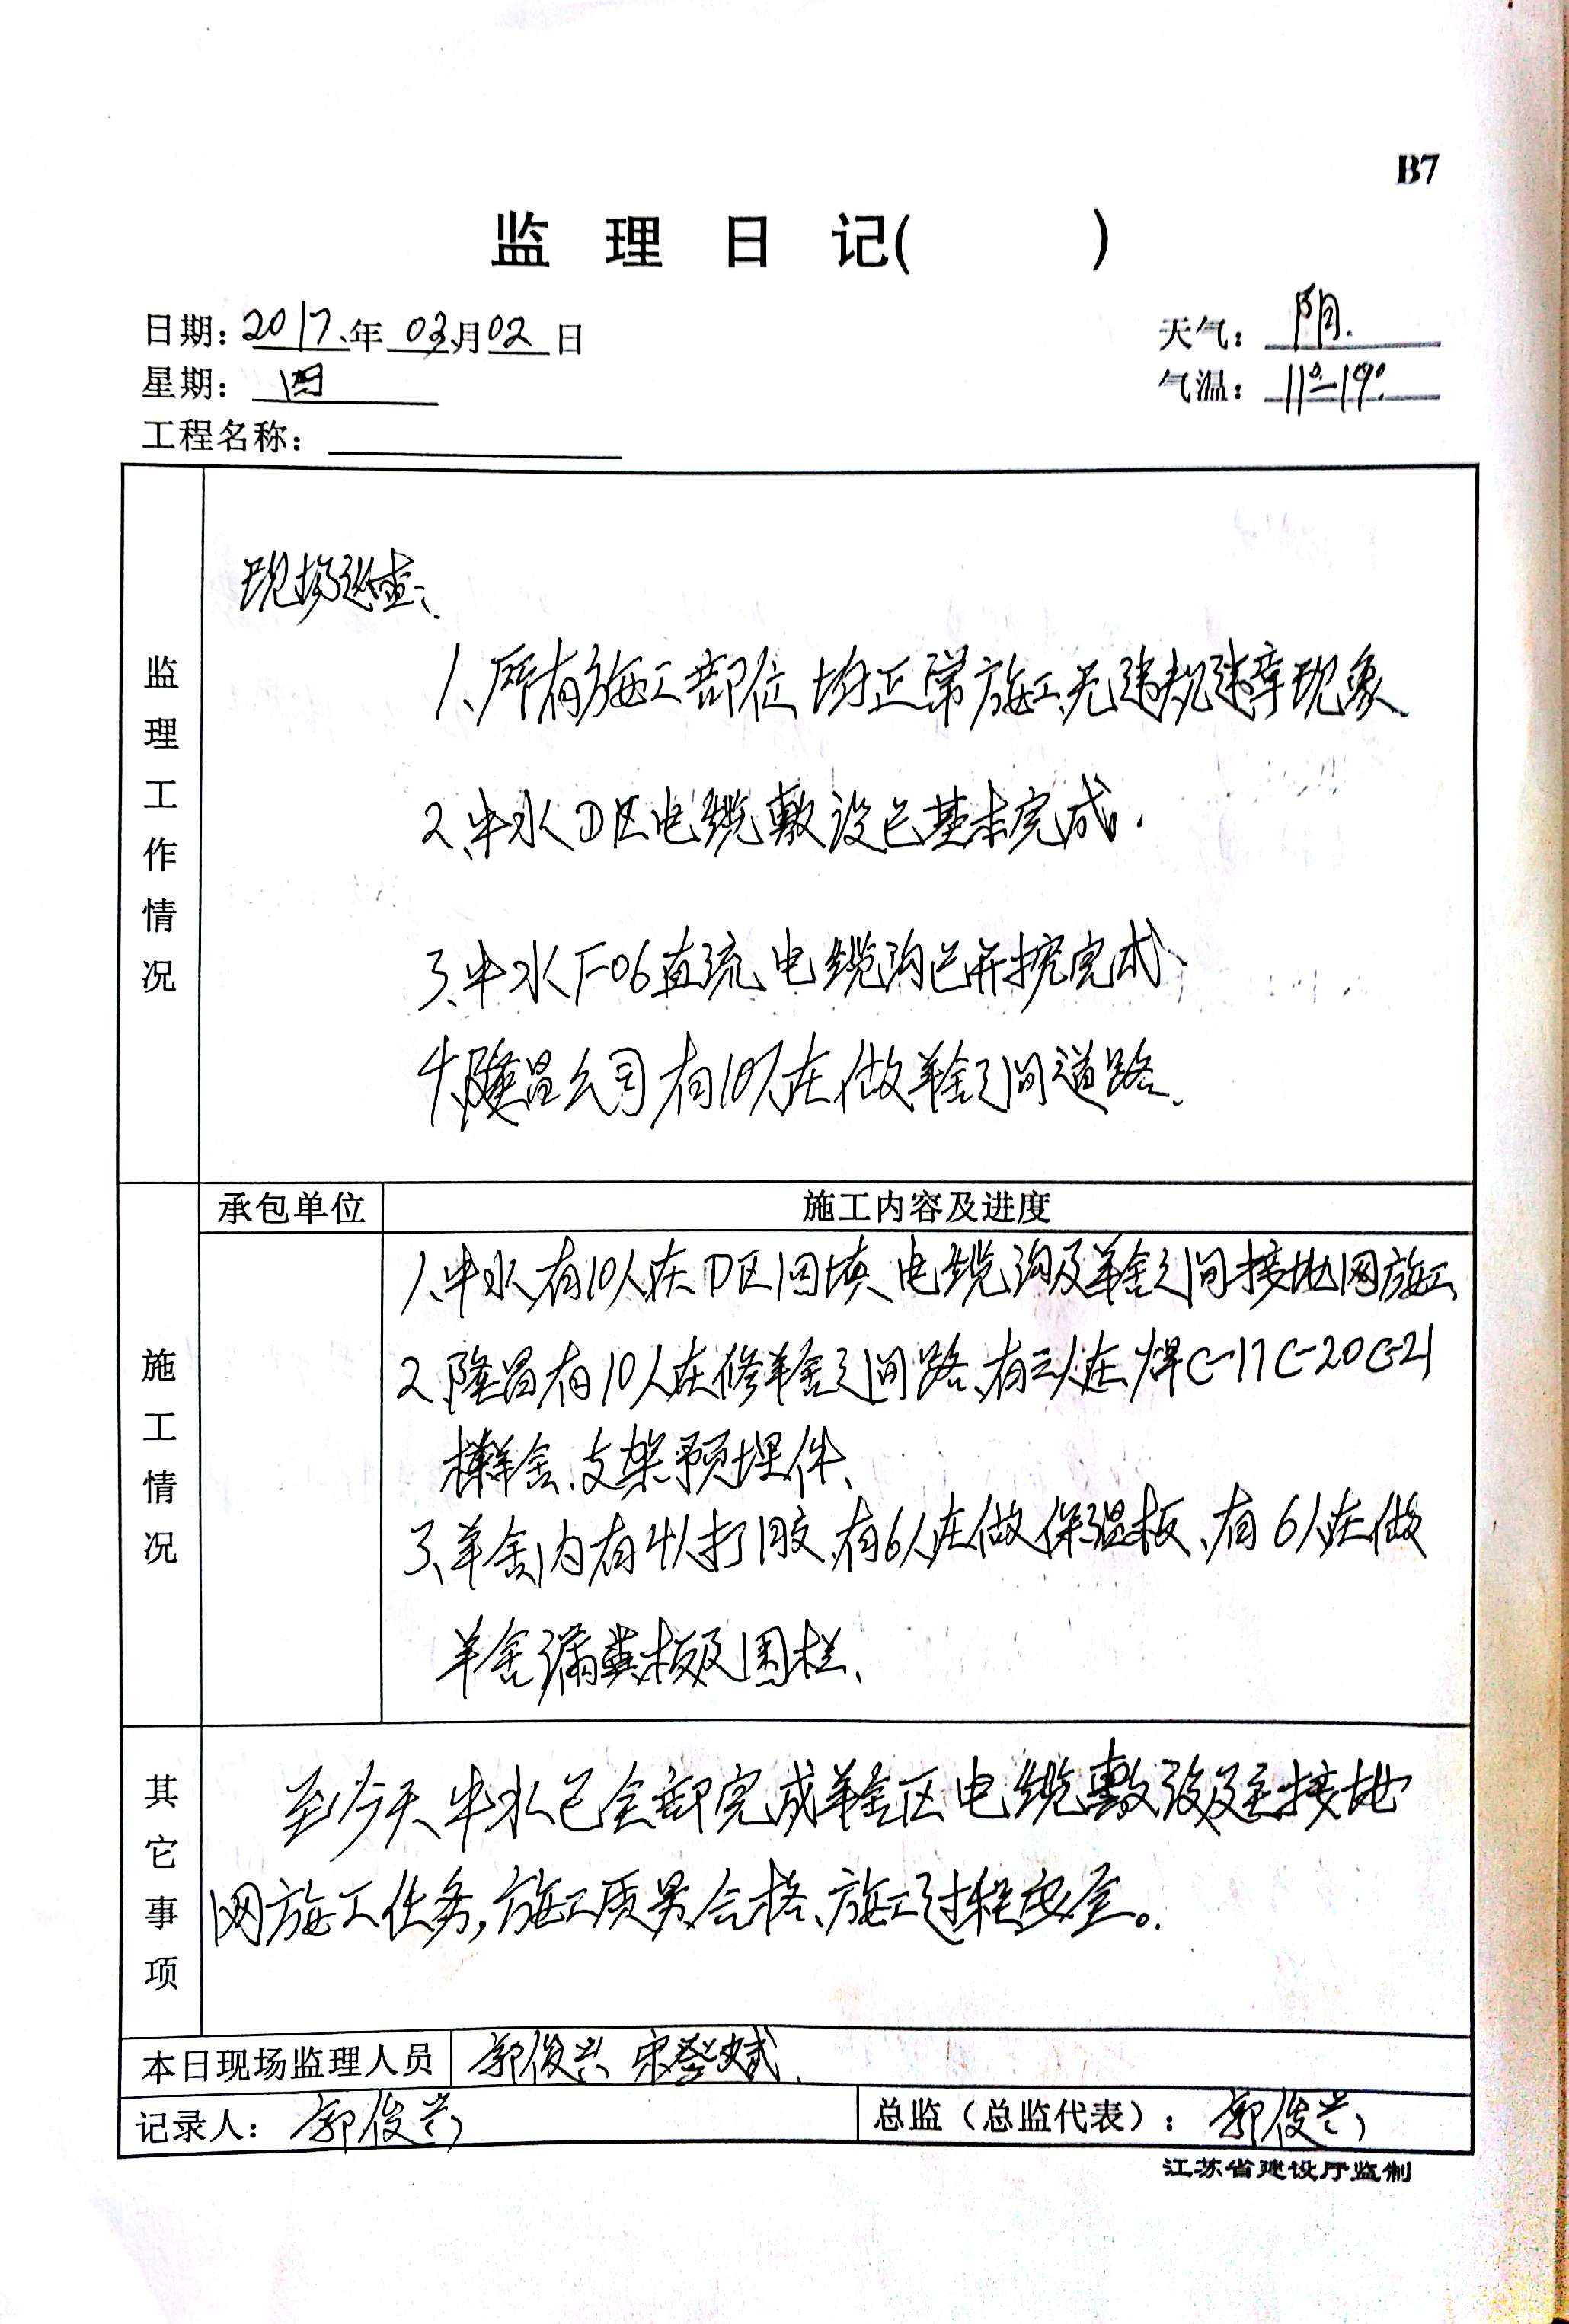 B7
监 理 日 记( )
日期: 2017年 03月 02日
天气: 阴.
星期: 四
气温: 11°-19°
工程名称:
监理工作情况
现场巡查:
1、所有施工部位均正常施工、无违规违章现象、
2、中水D区电缆敷设已基本完成.
3、中水F-06直流电缆沟已开挖完成、
4、隆昌公司有10人在做羊舍之间道路、
承包单位
施工内容及进度
施工情况
1、中水有10人在D区回填电缆沟及羊舍之间接地网施工
2、隆昌有10人在修羊舍之间路、有三人在焊C-17 C-20 C-21
栋羊舍、支架预埋件、
3、羊舍内有4人打胶、有6人在做保温板、有6人在做
羊舍漏粪板及围栏、
其它事项
至今天中水已全部完成羊舍区电缆敷设及主接地
网施工任务,施工质量合格、施工过程安全。
本日现场监理人员 郭俊兴 宋登斌
记录人: 郭俊兴
总监(总监代表): 郭俊兴
江苏省建设厅监制